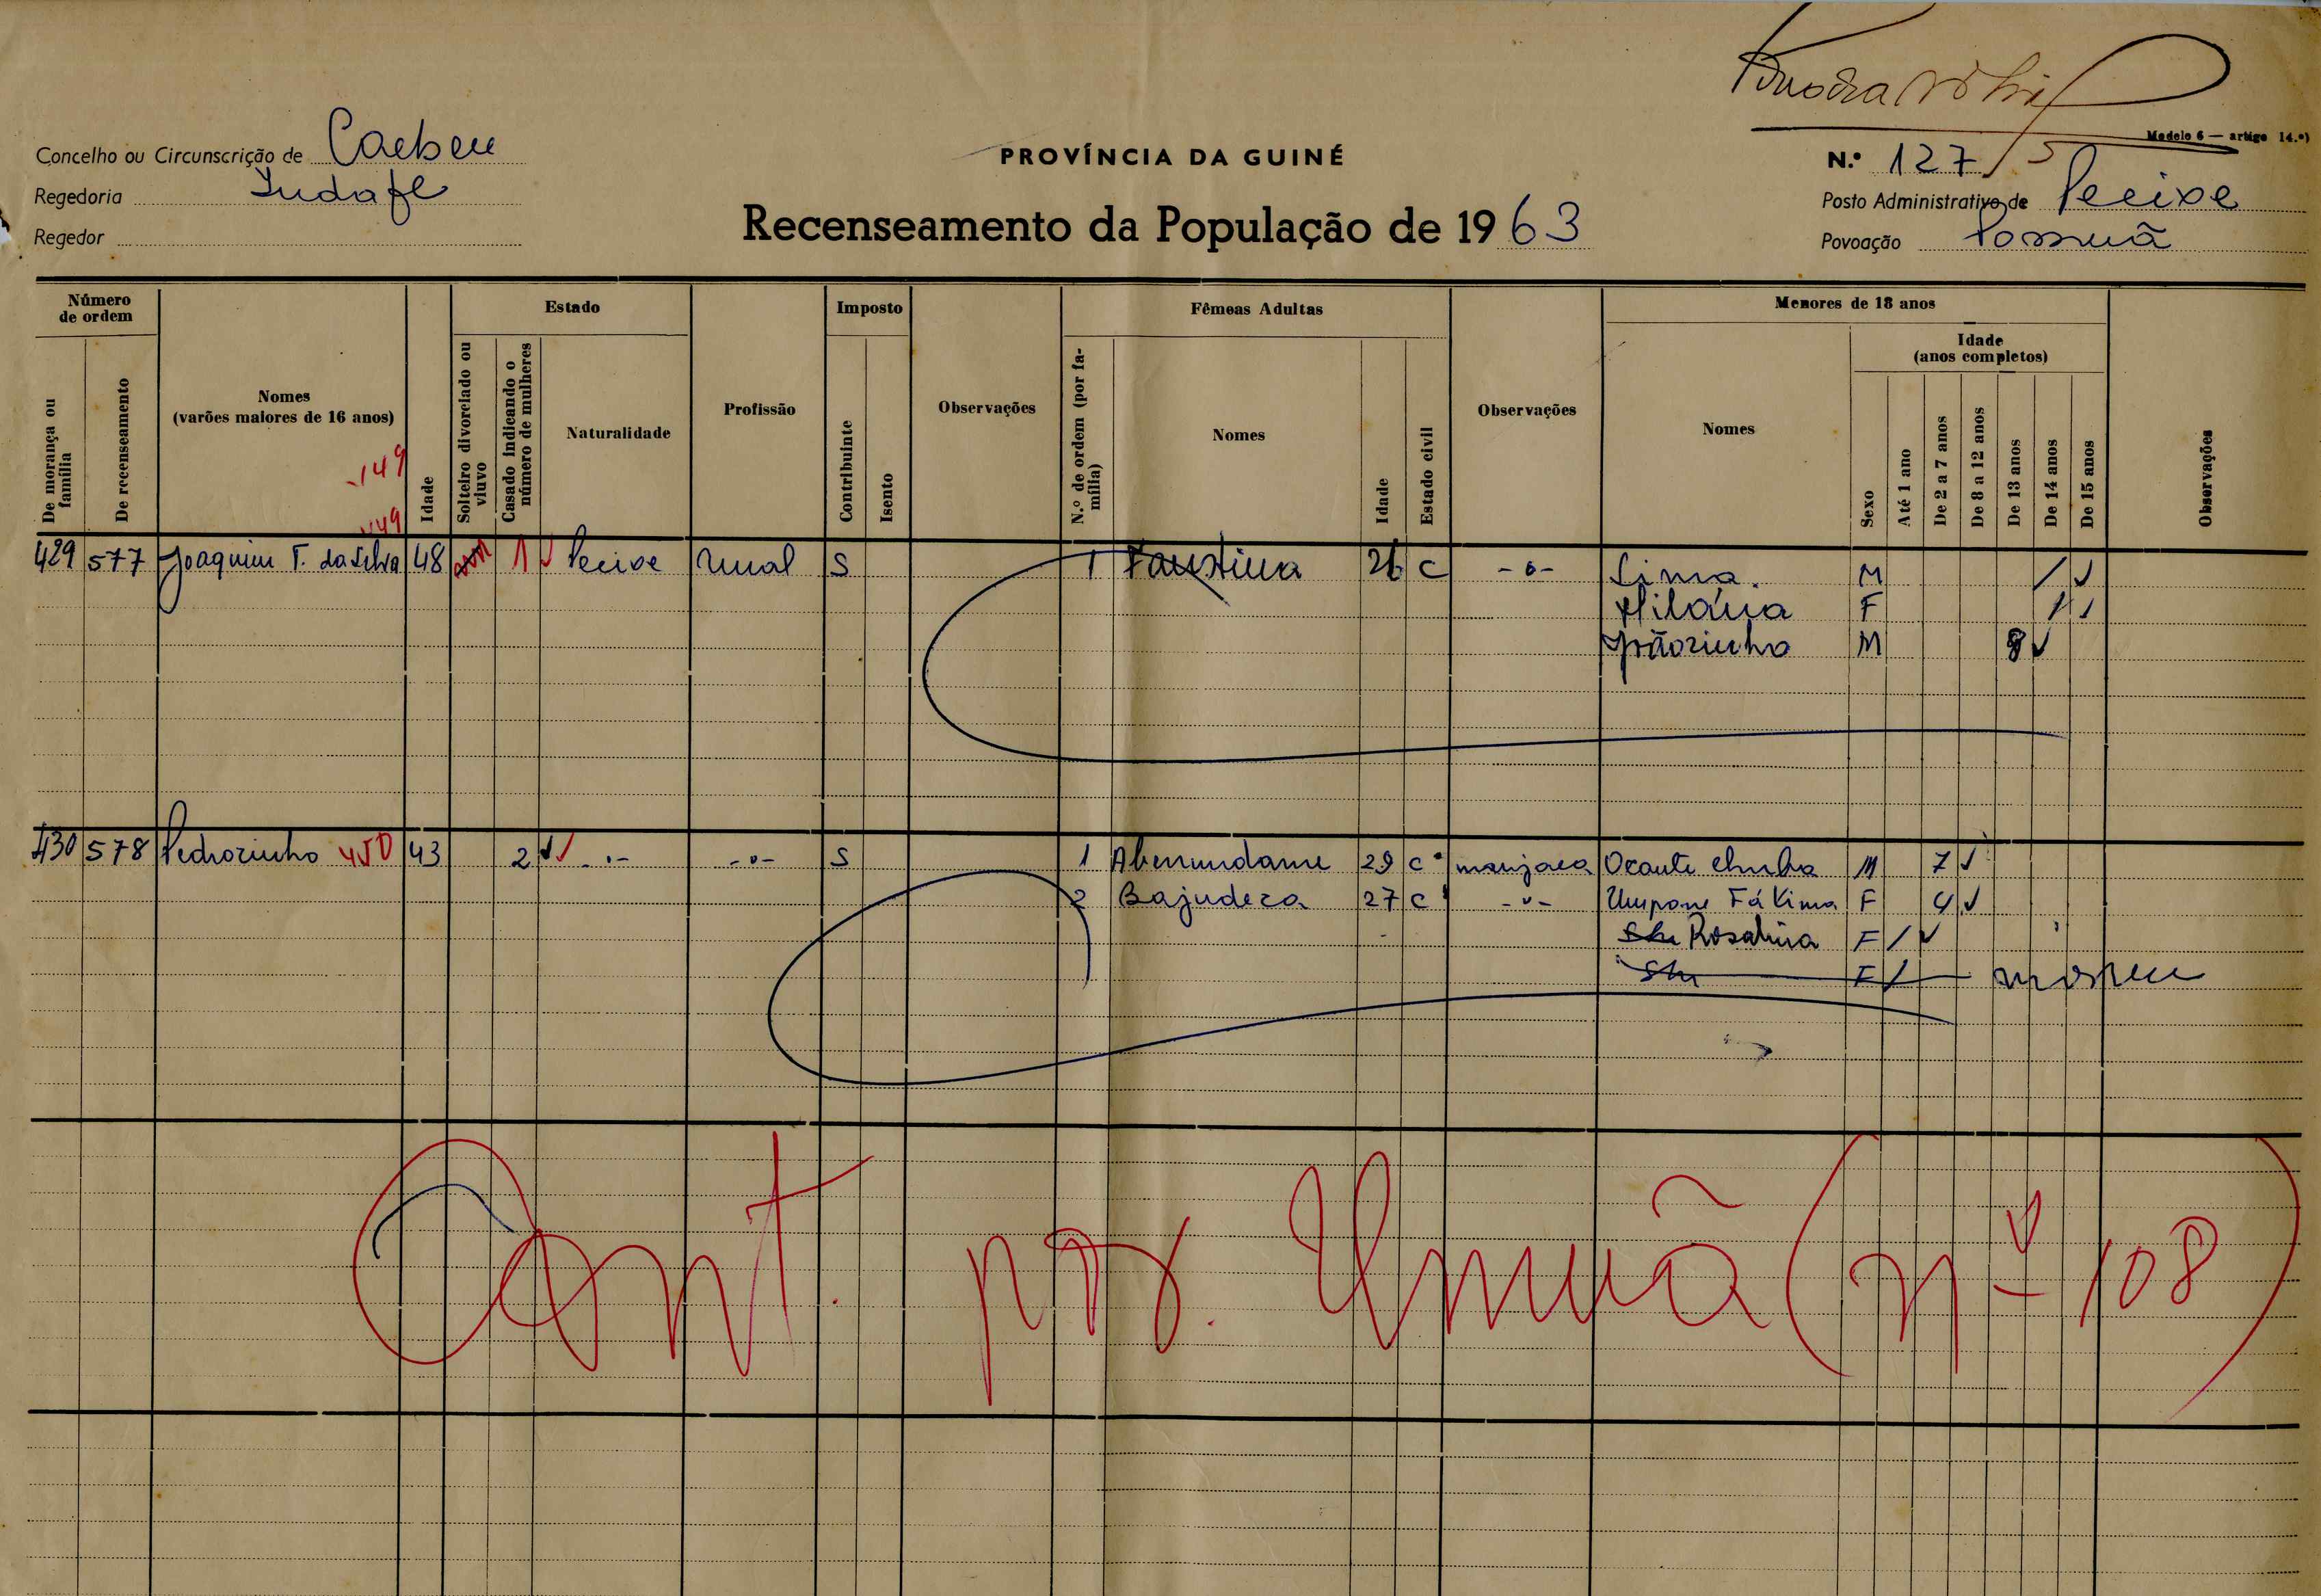 Modelo 6 — artigo 14.º)
Concelho ou Circunscrição de
PROVÍNCIA DA GUINÉ
N.º 127
Regedoria
Posto Administrativo de Pecixe
Regedor
Recenseamento da População de 1963
Povoação
Número de ordem
De morança ou família
De recenseamento
Nomes
(varões maiores de 16 anos)
149
149
Idade
Estado
Solteiro divorciado ou viuvo
Casado indicando o número de mulheres
Naturalidade
Profissão
Imposto
Contribuinte
Isento
Observações
Fêmeas Adultas
N.º de ordem (por família)
Nomes
Idade
Estado civil
Observações
Menores de 18 anos
Nomes
Sexo
Idade
(anos completos)
Até 1 ano
De 2 a 7 anos
De 8 a 12 anos
De 13 anos
De 14 anos
De 15 anos
Observações
429 577 Joaquim T. da Silva 48 1 Pecixe rural S 1 Faustina 26 C -o- Lima. M
Hilária F
Joãozinho M 8
430 578 Pedrozinho 450 43 2 -o- S 1 29 C manjaca M 7
2 Bajudeza 27 C -o- Fátima F 4
Rosalina F
F
Cont. por Umuã (nº 108)